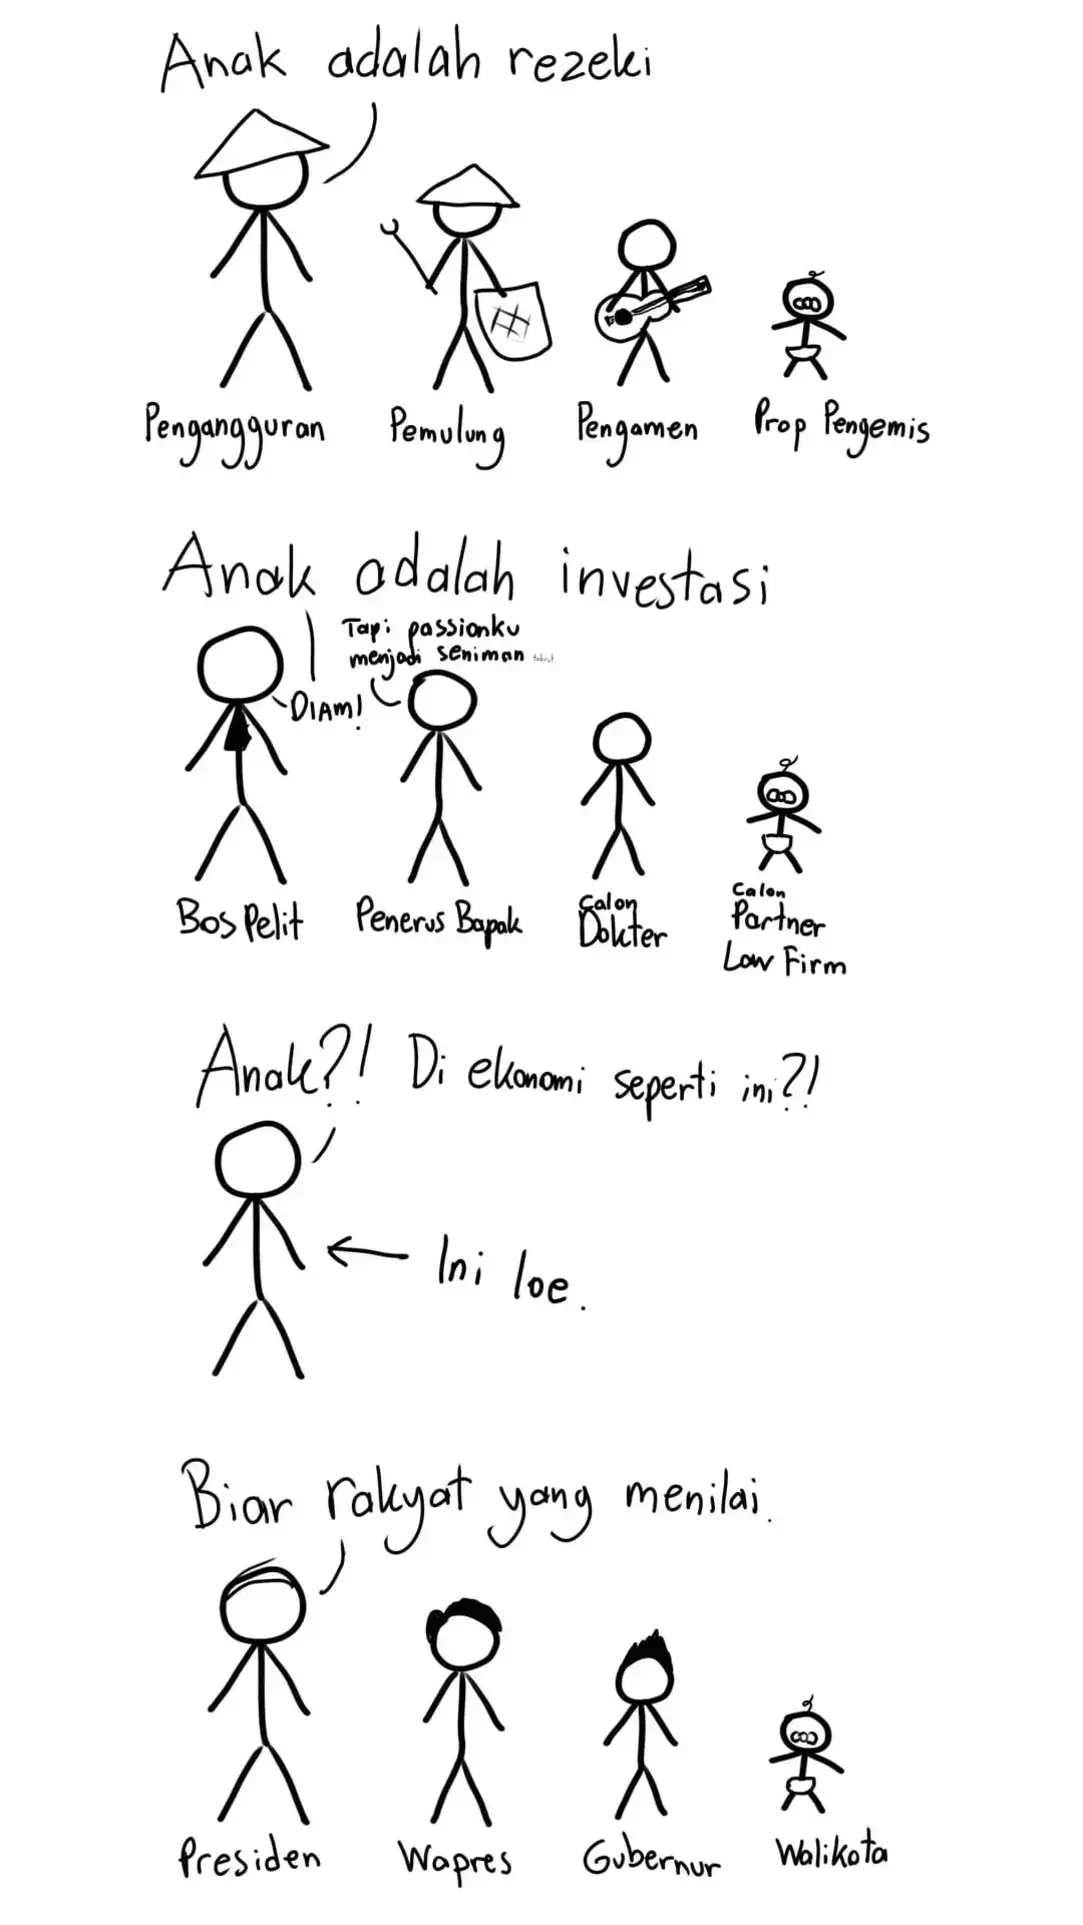 Anak adalah rezeki
Pengangguran
Pemulung
Pengamen
Prop Pengemis
Anak adalah investasi
Tapi passionku
menjadi seniman
DIAM!
Bos Pelit
Penerus Bapak
Calon
Dokter
Calon
Partner
Law Firm
Anak?! Di ekonomi seperti ini?!
Ini loe.
Biar rakyat yang menilai.
Presiden
Wapres
Gubernur
Walikota